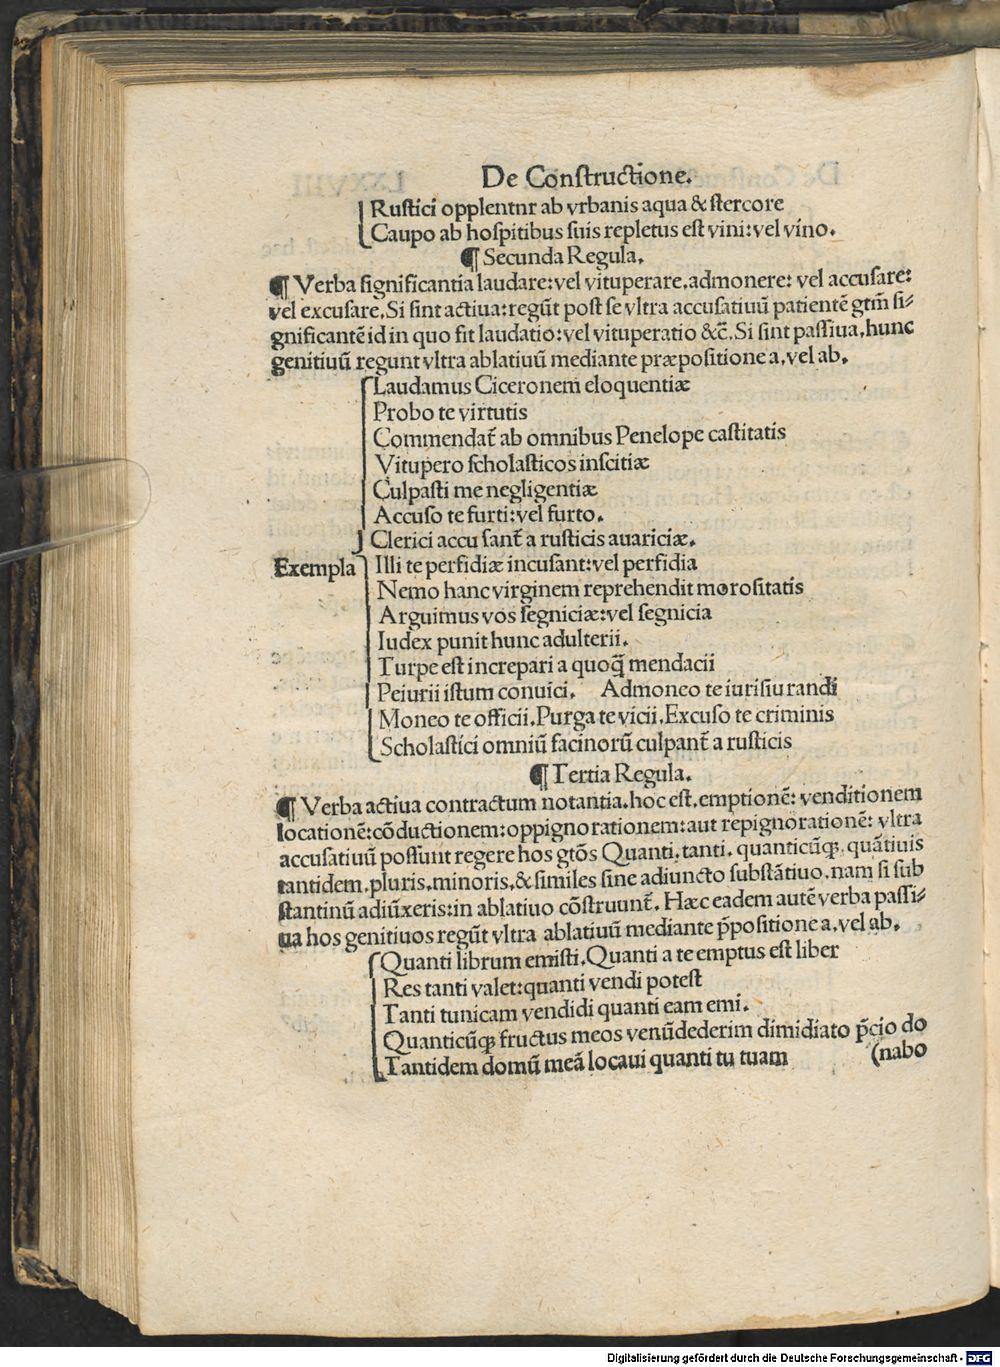 De Conſtructione.
Ruſtici opplentnr ab vrbanis aqua & ſtercore
Caupo ab hoſpitibus ſuis repletus eſt vini: vel vino.
¶ Secunda Regula.
¶ Verba ſignificantia laudare: vel vituperare, admonere: vel accuſare:
vel excuſare, Si ſint actiua: regūt poſt ſe vltra accuſatiuū patientē gtm̄ ſi⸗
gnificantē id in quo fit laudatio: vel vituperatio &c̄. Si ſint paſſiua, hunc
genitiuū regunt vltra ablatiuū mediante præpoſitione a, vel ab.
Laudamus Ciceronem eloquentiæ
Probo te virtutis
Commendat̄ ab omnibus Penelope caſtitatis
Vitupero ſcholaſticos inſcitiæ
Culpaſti me negligentiæ
Accuſo te furti: vel furto.
Clerici accu ſant̄ a ruſticis auariciæ.
Exempla Illi te perfidiæ incuſant: vel perfidia
Nemo hanc virginem reprehendit moroſitatis
Arguimus vos ſegniciæ: vel ſegnicia
Iudex punit hunc adulterii.
Turpe eſt increpari a quoꝗ̄ mendacii
Peiurii iſtum conuici. Admoneo te iurisiu randi
Moneo te officii. Purga te vicii. Excuſo te criminis
Scholaſtici omniū facinorū culpant̄ a ruſticis
¶ Tertia Regula.
¶ Verba actiua contractum notantia. hoc eſt, emptionē: venditionem
locationē: cōductionem: oppignorationem: aut repignorationē: vltra
accuſatiuū poſſunt regere hos gtōs Quanti, tanti, quanticūqꝫ, quātiuis
tantidem, pluris, minoris, & ſimiles ſine adiuncto ſubſtātiuo, nam ſi ſub
ſtantinū adiūxeris: in ablatiuo cōſtruunt̄. Hæc eadem autē verba paſſi⸗
ua hos genitiuos regūt vltra ablatiuū mediante p̄poſitione a, vel ab.
Quanti librum emiſti. Quanti a te emptus eſt liber
Res tanti valet: quanti vendi poteſt
Tanti tunicam vendidi quanti eam emi.
Quanticūqꝫ fructus meos venūdederim dimidiato p̄cio do
Tantidem domū meā locaui quanti tu tuam (nabo
Digitalisierung gefördert durch die Deutsche Forschungsgemeinschaft - DFG